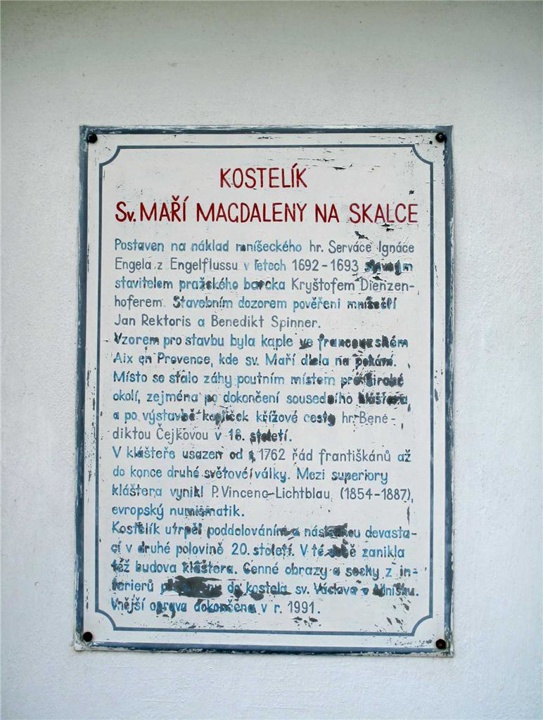 KOSTELÍK
Sv. MAŘÍ MAGDALENY NA SKALCE
Postaven na náklad mníšeckého hr. Serváce Ignáce
Engela z Engelflussu v letech 1692-1693 slavným
stavitelem pražského baroka Kryštofem Dienzen-
hoferem. Stavebním dozorem pověřeni mníšečtí
Jan Rektoris a Benedikt Spinner.
Vzorem pro stavbu byla kaple ve francouzském
Aix en Provence, kde sv. Maří dlela na pokání.
Místo se stalo záhy poutním místem pro široké
okolí, zejména po dokončení sousedního kláštera
a po výstavbě kapliček křížové cesty hr. Bene-
diktou Čejkovou v 18. století.
V klášteře usazen od r. 1762 řád františkánů až
do konce druhé světové války. Mezi superiory
kláštera vynikl P. Vincenc-Lichtblau (1854-1887),
evropský numismatik.
Kostelík utrpěl poddolováním a následnou devasta-
cí v druhé polovině 20. století. V té době zanikla
též budova kláštera. Cenné obrazy a sochy z in-
teriérů do kostela sv. Václava v Mníšku.
Vnější oprava dokončena v r. 1991.